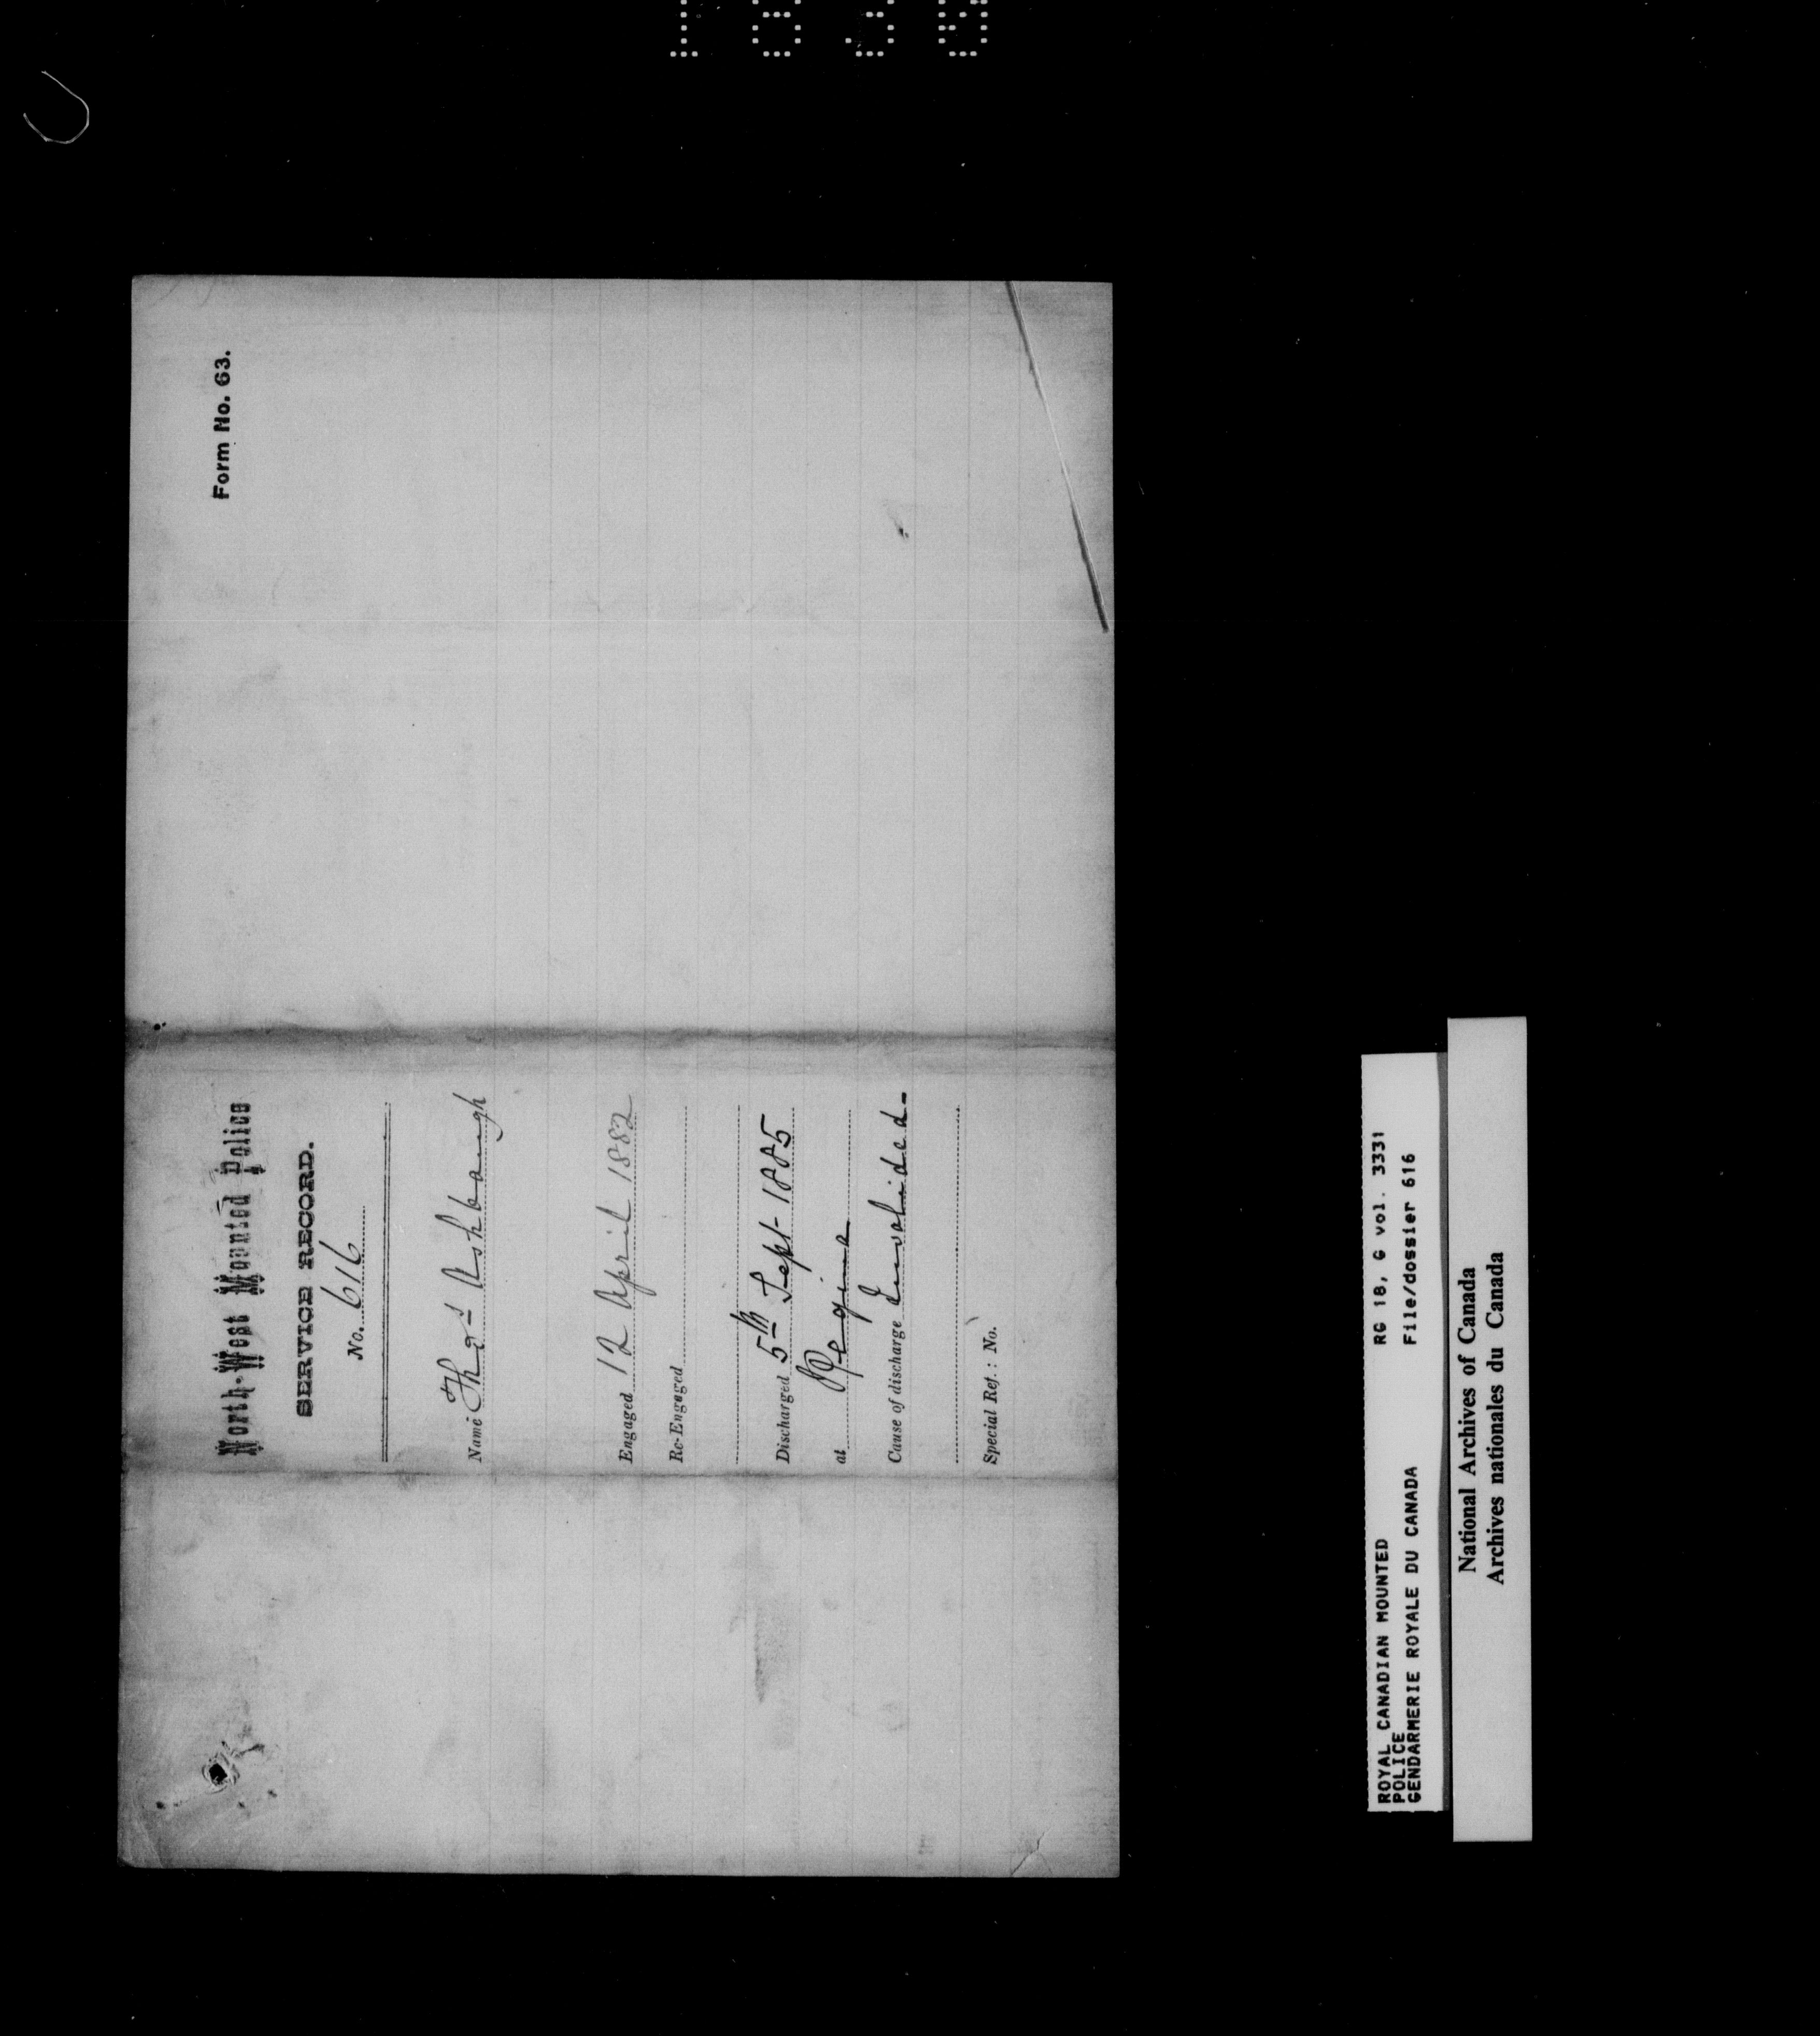 Form No. 63.
North-West Mounted Police
SERVICE RECORD.
No. 616
Name Thos Ashbaugh
Engaged 12 April 1882
Re-Engaged
Discharged 5th Sept- 1885
at Regina
Cause of discharge Invalided-
Special Ref.: No.
ROYAL CANADIAN MOUNTED RG 18, G vol. 3331
POLICE
GENDARMERIE ROYALE DU CANADA File/dossier 616
National Archives of Canada
Archives nationales du Canada